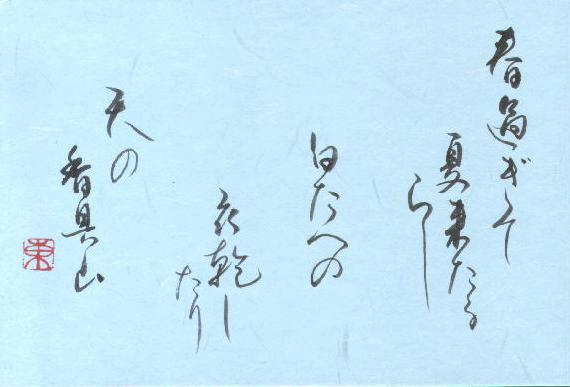 春過ぎて
夏来たる
らし
白たへの
衣乾し
たり
天の
香具山
東